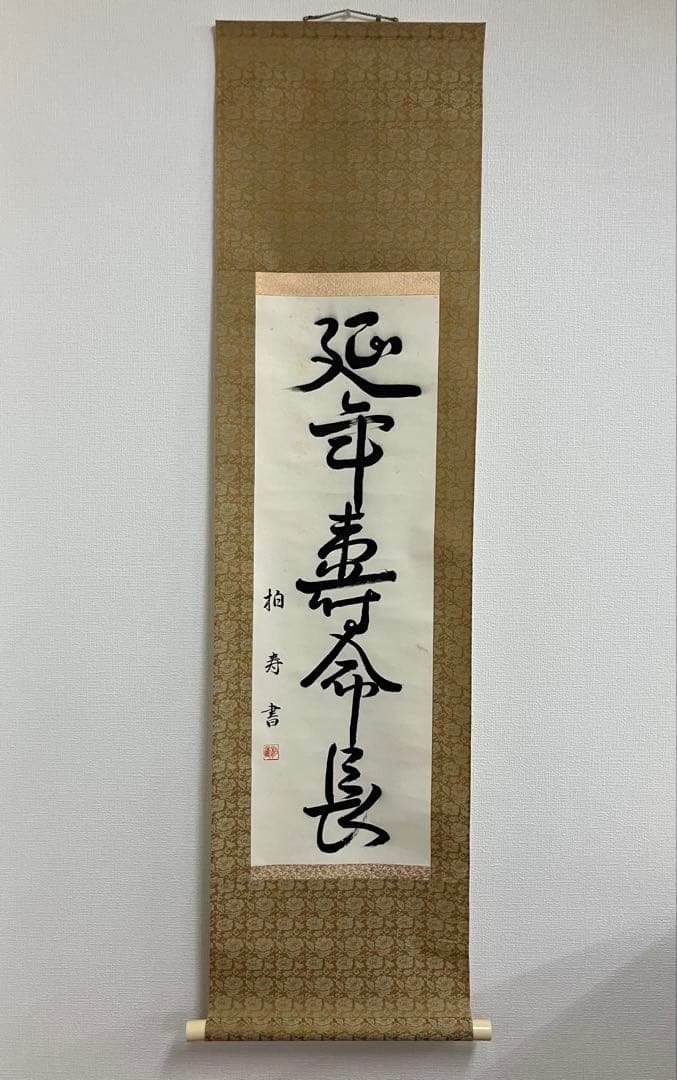 延年壽命長
柏寿書